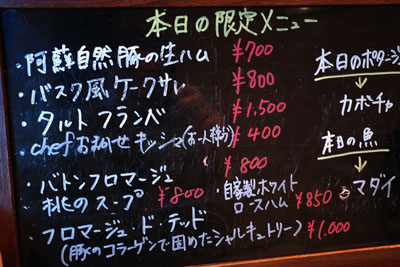 本日の限定メニュー
・阿蘇自然豚の生ハム ¥700
・バスク風ケークサレ ¥800
・タルトフランベ ¥1,500
・chefお勧めキッシュ(お一人様分) ¥400
¥800
・バトンフロマージュ
桃のスープ ¥800
・自家製ホワイト
ロースハム ¥850
・フロマージュ・ド・テッド
(豚のコラーゲンで固めたシャルキュトリー) ¥1.000
本日のポタージュ
↓
カボーチャ
本日の魚
↓
マダイ